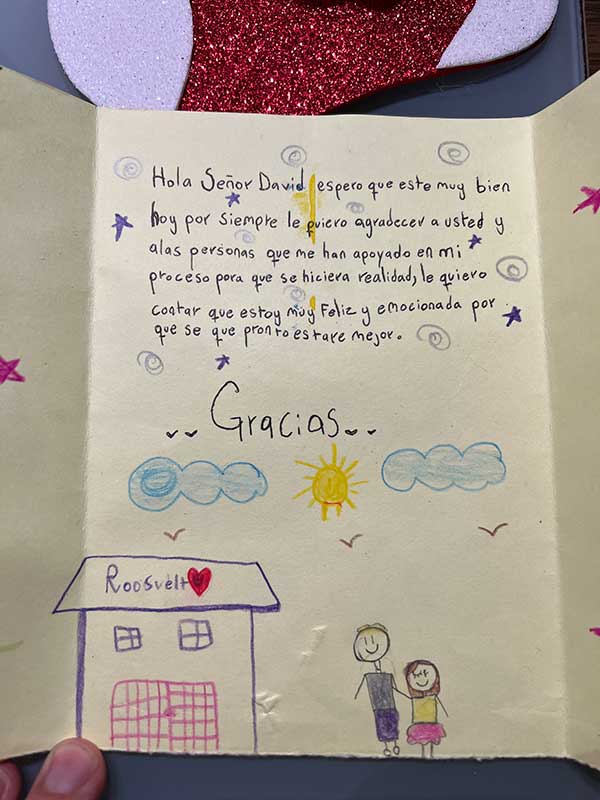 Hola Señor David espero que este muy bien
hoy por siempre le quiero agradecer a usted y
alas personas que me han apoyado en mi
proceso para que se hiciera realidad, le quiero
contar que estoy muy Feliz y emocionada por
que se que pronto estare mejor.
Gracias
Roosvelt